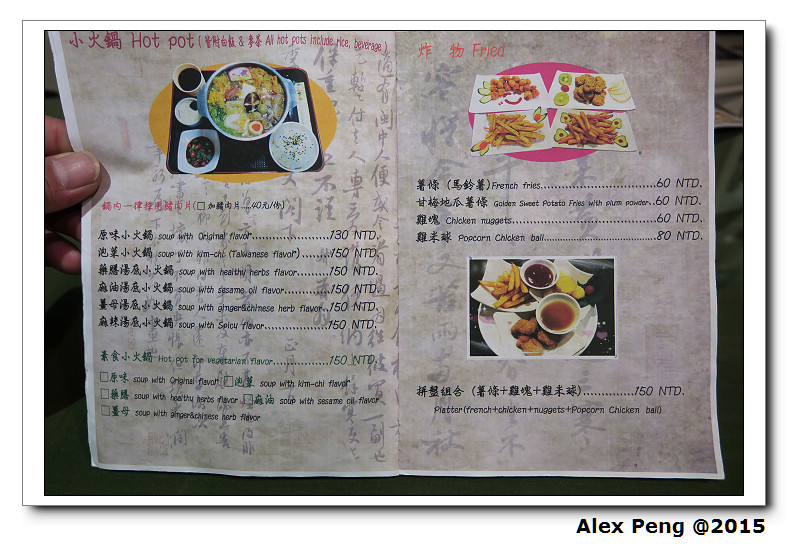 小火鍋 Hot pot ( 皆附白飯 & 麥茶 All hot pots include rice, beverage )
鍋內一律採用豬肉片(□ 加豬肉片.....40元/份)
原味小火鍋 soup with Original flavor.....................130 NTD.
泡菜小火鍋 soup with kim-chi (Taiwanese flavor)........150 NTD.
藥膳湯底小火鍋 soup with healthy herbs flavor........150 NTD.
麻油湯底小火鍋 soup with sesame oil flavor...........150 NTD.
薑母湯底小火鍋 soup with ginger&chinese herb flavor..150 NTD.
麻辣湯底小火鍋 soup with Spicy flavor................150 NTD.
素食小火鍋 Hot pot for vegetarian flavor................150 NTD.
□原味 soup with Original flavor □泡菜 soup with kim-chi flavor
□藥膳 soup with healthy herbs flavor □麻油 soup with sesame oil flavor
□薑母 soup with ginger&chinese herb flavor
炸 物 Fried
薯條 (馬鈴薯)French fries................................60 NTD.
甘梅地瓜薯條 Golden Sweet Potato Fries with plum powder..60 NTD.
雞塊 Chicken nuggets........................................60 NTD.
雞米球 Popcorn Chicken ball...............................80 NTD.
拼盤組合 (薯條+雞塊+雞米球)...............150 NTD.
Platter(french+chicken+nuggets+Popcorn Chicken ball)
Alex Peng @2015